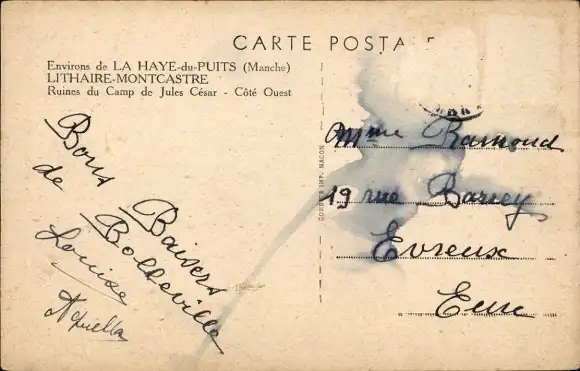 CARTE POSTA
Environs de LA HAYE-du-PUITS (Manche)
LITHAIRE-MONTCASTRE
Ruines du Camp de Jules César - Côté Ouest
Bons Baisers
de Bolleville
Louise
Mme Ramond
19 rue Barrey
Evreux
Eure
IMP. MACON